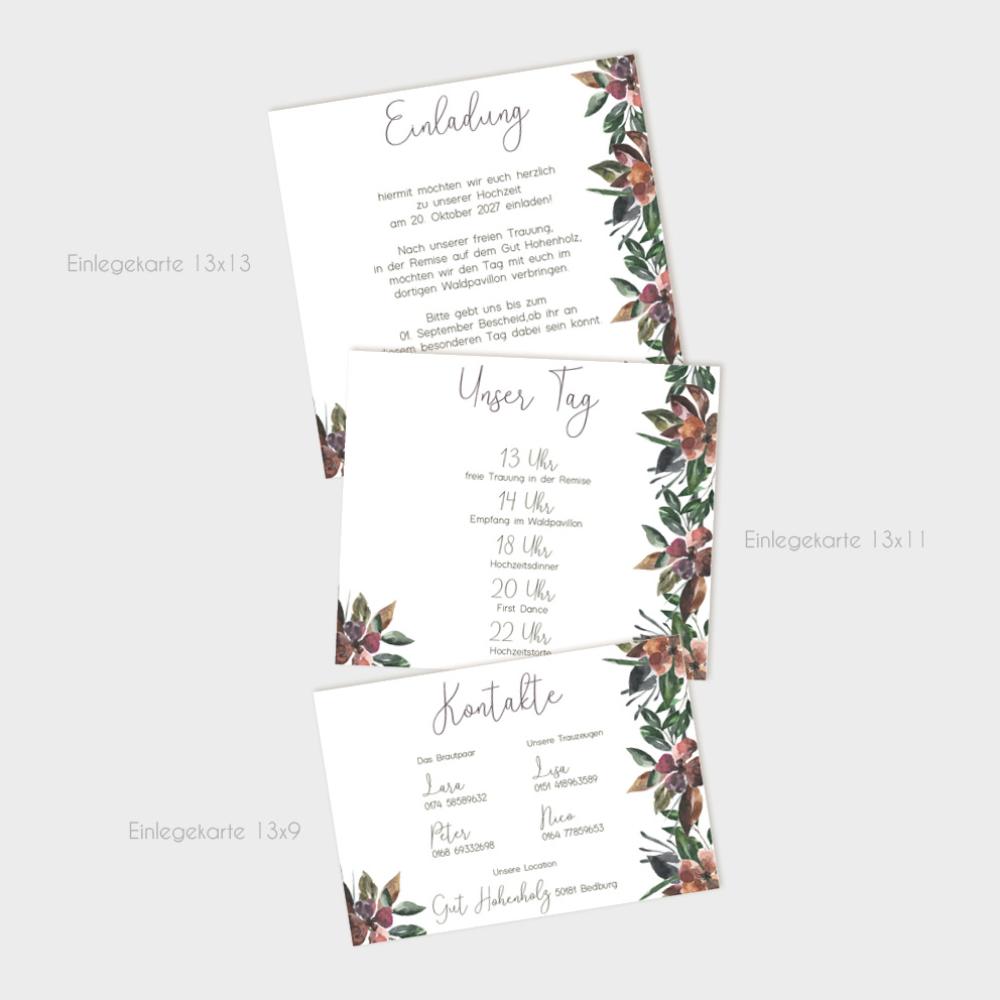 Einladung
hiermit möchten wir euch herzlich
zu unserer Hochzeit
am 20. Oktober 2027 einladen!
Nach unserer freien Trauung,
in der Remise auf dem Gut Hohenholz,
möchten wir den Tag mit euch im
dortigen Waldpavillon verbringen.
Bitte gebt uns bis zum
01. September Bescheid,ob ihr an
besonderen Tag dabei sein könnt.
Einlegekarte 13x13
Unser Tag
13 Uhr
freie Trauung in der Remise
14 Uhr
Empfang im Waldpavillon
18 Uhr
Hochzeitsdinner
20 Uhr
First Dance
22 Uhr
Hochzeitstorte
Einlegekarte 13x11
Kontakte
Das Brautpaar
Lara
0174 58589632
Peter
0168 69332698
Unsere Trauzeugen
Lisa
0151 418963589
Nico
0164 77859653
Unsere Location
Gut Hohenholz 50181 Bedburg
Einlegekarte 13x9